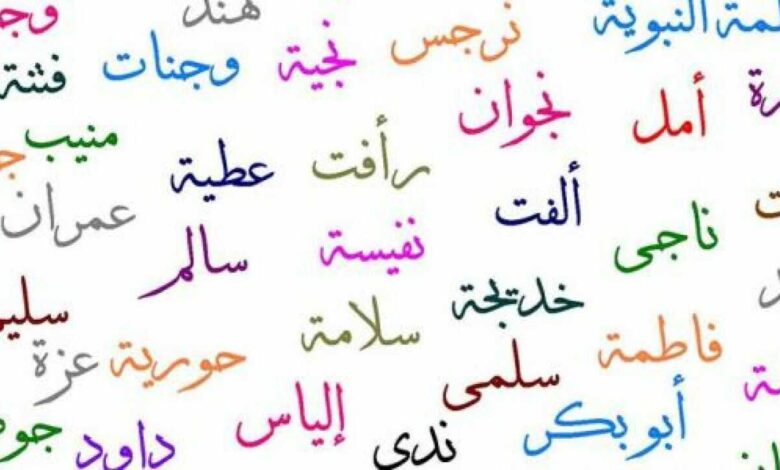 هند
النبوية نرجس نجية وجنات فتنة
أمل نجوان منيب
ألفت رأفت عطية عمران
ناجى نفيسة سالم
خديجة سلامة
فاطمة سلمى حورية عزة
أبو بكر ندى إلياس داود